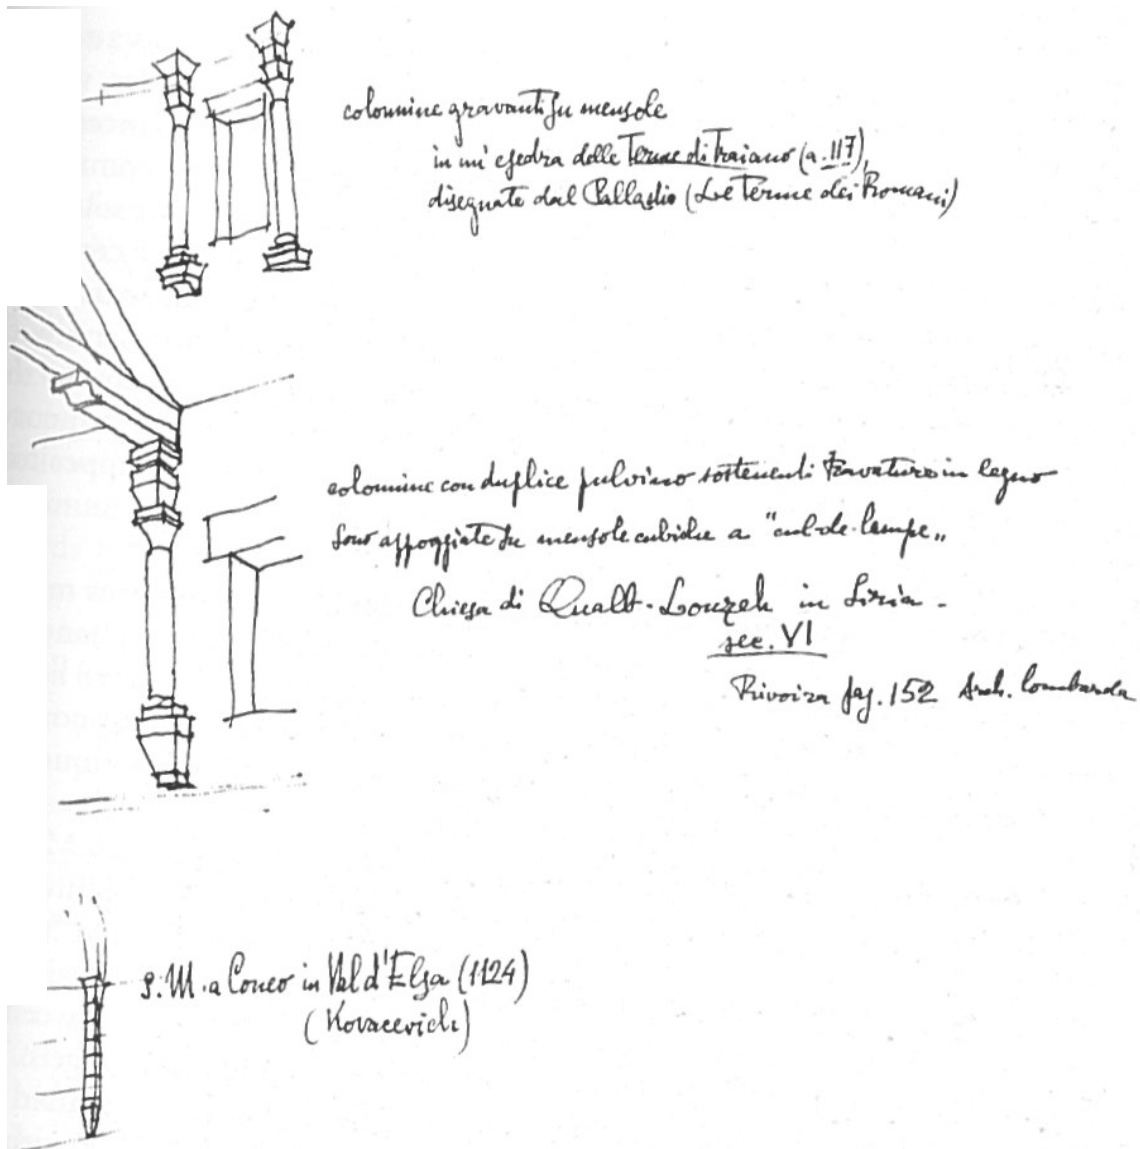 colonnine gravanti su mensole
in un' esedra delle Terme di Traiano (a. 117),
disegnate dal Palladio (Le Terme dei Romani)
colonnine con duplice pulvino sostenenti travature in legno
sono appoggiate su mensole cubiche a "cul-de-lampe"
Chiesa di Qualb-Louzeh in Siria -
sec. VI
Rivoira pag. 152 Arch. lombarda
S. M. a Coneo in Val d'Elsa (1124)
(Kovacevich)